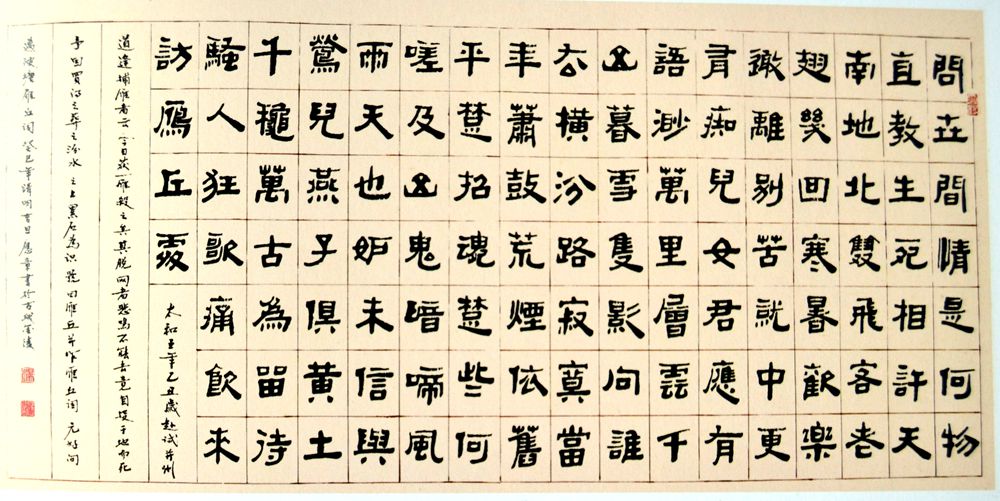 問世間情是何物
直教生死相許天
南地北雙飛客老
翅幾回寒暑歡樂
趣離別苦就中更
有痴兒女君應有
語渺萬里層雲千
山暮雪隻影向誰
去橫汾路寂寞當
年蕭鼓荒煙依舊
平楚招魂楚些何
嗟及山鬼暗啼風
雨天也妒未信與
鶯兒燕子俱黃土
千龝萬古為留待
騷人狂歌痛飲來
訪鴈丘處
太和五年乙丑歲赴試并州
道逢捕雁者云今日獲一雁殺之矣其脫網者悲鳴不能去竟自投于地而死
予因買得之葬之汾水之上累石為識號曰雁丘并作雁丘詞 元好問
邁陂塘雁丘詞 癸巳年清明書